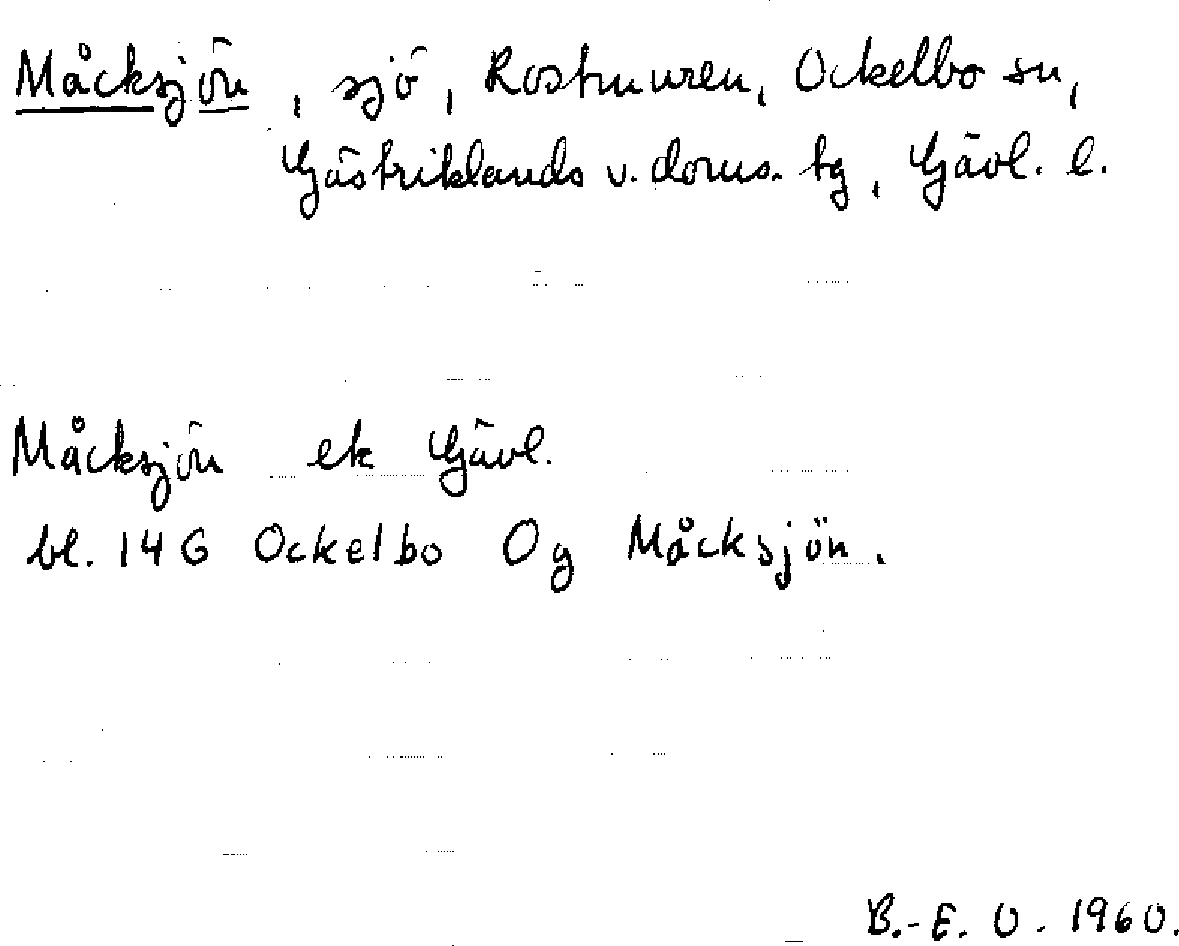 Måcksjön, sjö, Rostmuren, Ockelbo sn,
Gästriklands v. doms. tg, Gävl. l.
Måcksjön ek Gävl.
bl. 14G Ockelbo 0g Måcksjön.
B.-E. O. 1960.